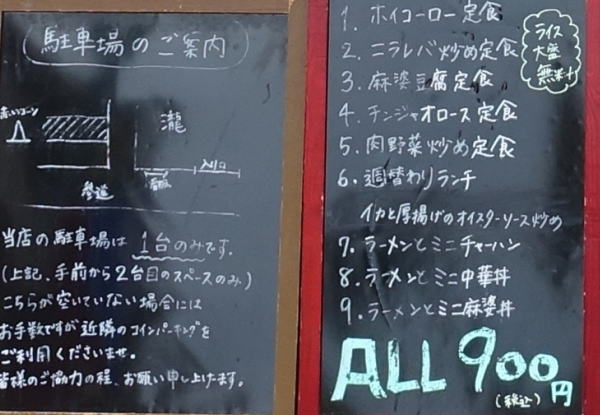 駐車場のご案内
赤いコーン
瀧
入口
看板
参道
当店の駐車場は1台のみです。
(上記、手前から2台目のスペースのみ)
こちらが空いていない場合には
お手数ですが近隣のコインパーキングを
ご利用くださいませ。
皆様のご協力の程、お願い申し上げます。
1. ホイコーロー定食
2. ニラレバ炒め定食
3. 麻婆豆腐定食
4. チンジャオロース定食
5. 肉野菜炒め定食
6. 週替わりランチ
イカと厚揚げのオイスターソース炒め
7. ラーメンとミニチャーハン
8. ラーメンとミニ中華丼
9. ラーメンとミニ麻婆丼
ライス
大盛
無料!
ALL 900円
(税込)